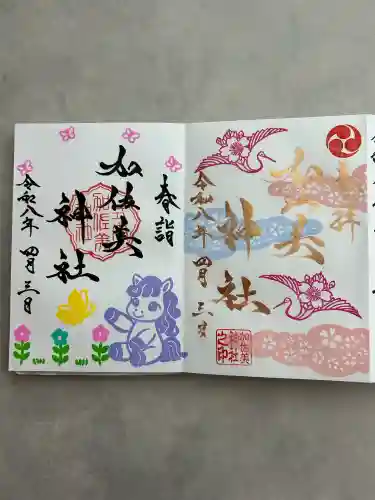 奉拝
加佐美
神社
令和八年 四月 三日
加佐美
神社
之印
春詣
加佐美
神社
令和八年 四月 三日
加佐美